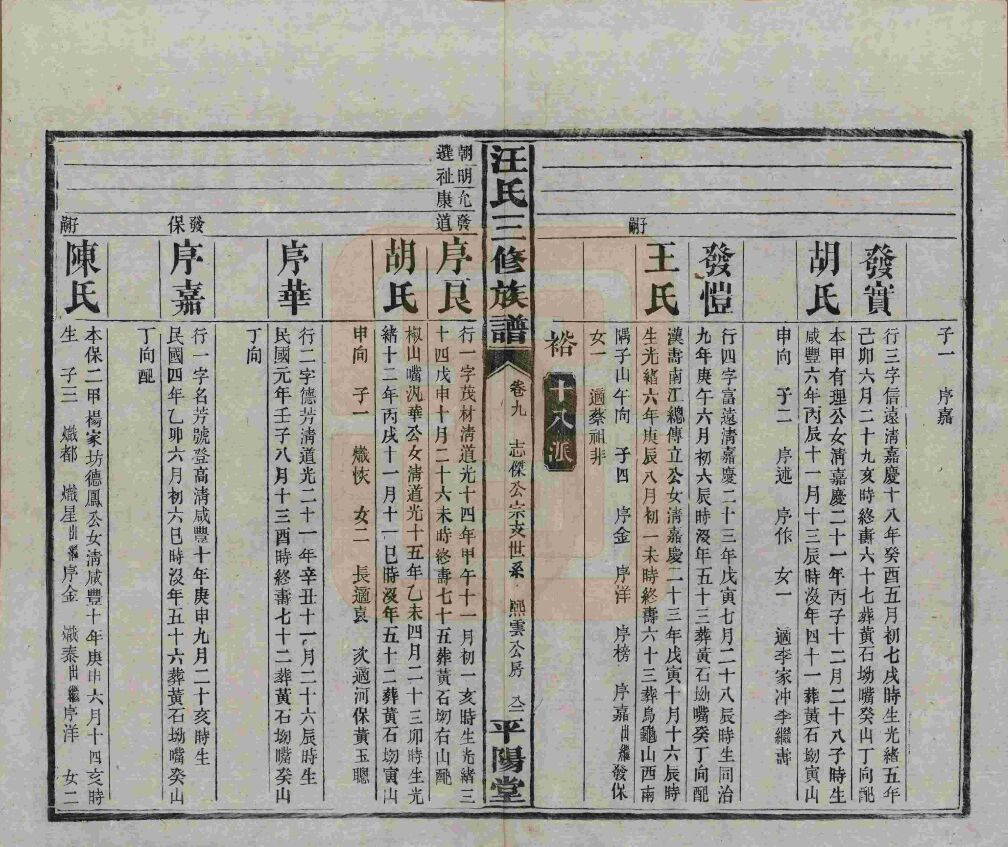 子一　序嘉
發實
行三字信遠淸嘉慶十八年癸酉五月初七戌時生光緒五年
己卯六月二十九亥時終壽六十七葬黃石坳嘴癸山丁向配
胡氏
本甲有理公女淸嘉慶二十一年丙子十二月二十八子時生
咸豐六年丙辰十一月十三辰時沒年四十一葬黃石坳寅山
申向　子二　序述　序作　女一　適李家冲李繼壽
發愷
行四字富遠淸嘉慶二十三年戊寅七月二十八辰時生同治
九年庚午六月初六辰時沒年五十三葬黃石坳嘴癸丁向配
王氏
漢壽南江總傳立公女淸嘉慶二十三年戊寅十月十六辰時
生光緒六年庚辰八月初一未時終壽六十三葬烏龜山西南
隅子山午向　子四　序金　序洋　序榜　序嘉出繼發保
女一　適蔡祖非
裕　十八派
汪氏三修族譜　卷九　志傑公宗支世系　熙雲公房　平陽堂
朝選　明祉　允康　發道
序良
行一字茂材淸道光十四年甲午十一月初一亥時生光緒三
十四戊申十月二十六未時終壽七十五葬黃石坳右山配
胡氏
椒山嘴汎華公女淸道光十五年乙未四月二十三卯時生光
緒十二年丙戌十一月十一巳時沒年五十二葬黃石坳寅山
申向　子一　熾恢　女二　長適哀　次適河保黃玉聰
序華
行二字德芳淸道光二十一年辛丑十一月二十六辰時生
民國元年壬子八月十三酉時終壽七十二葬黃石坳嘴癸山
丁向
發保
序嘉
行一字名芳號登高淸咸豐十年庚申九月二十亥時生
民國四年乙卯六月初六巳時沒年五十六葬黃石坳嘴癸山
丁向配
陳氏
本保二甲楊家坊德鳳公女淸咸豐十年庚申六月十四亥時
生　子三　熾都　熾星出繼序金　熾泰出繼序洋　女二